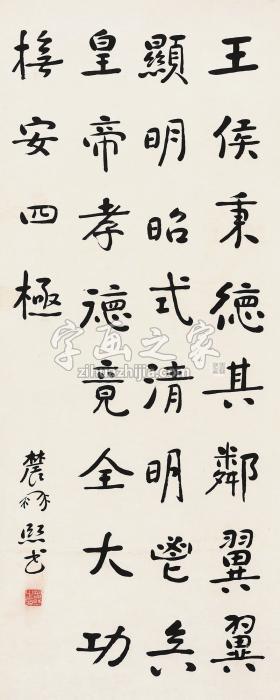 王侯秉德其鄰翼翼
顯明昭式清明鬯矣
皇帝孝德竟全大功
撫安四極
農髯熙书
字画之家
zihuazhijia.com